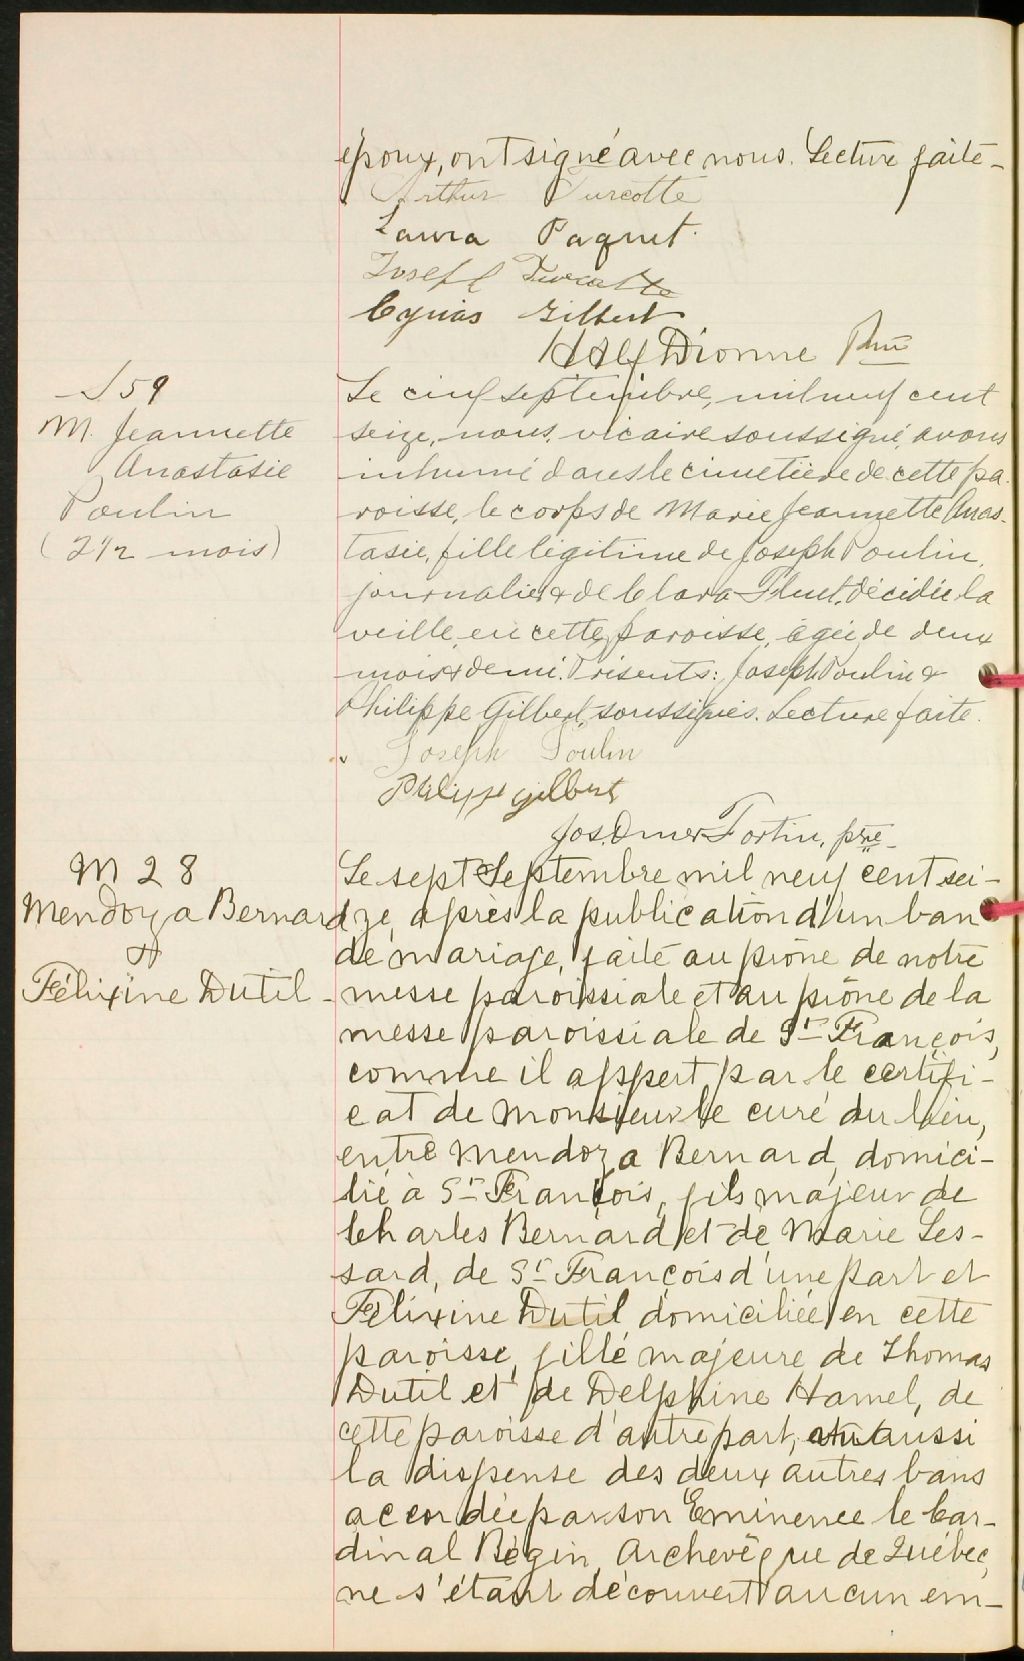 époux, ont signé avec nous. Lecture faite -
Arthur Turcotte
Laura Paquet.
Joseph Turcotte
Cyrias Gilbert
Alf Dionne Ptre
S 59
M. Jeannette
Anastasie
Poulin
(2 1/2 mois)
Le cinq septembre, mil neuf cent
seize, nous, vicaire soussigné, avons
inhumé dans le cimetière de cette pa-
roisse, le corps de Marie Jeannette Anas-
tasie, fille légitime de Joseph Poulin,
journalier & de Clara décédée la
veille, en cette paroisse, âgée de deux
mois & demi. Présents: Joseph Poulin &
Philippe Gilbert, soussignés. Lecture faite.
Joseph Poulin
Philippe Gilbert
Jos. Omer Fortin, ptre
M 28
Mendoza Bernard
&
Félixine Dutil -
Le sept Septembre mil neuf cent sei-
ze, après la publication d'un ban
de mariage, faite au prône de notre
messe paroissiale et au prône de la
messe paroissiale de St François,
comme il appert par le certifi-
cat de Monsieur le curé du lieu,
entre Mendoza Bernard, domici-
lié à St François, fils majeur de
Charles Bernard et de Marie Les-
sard, de St François d'une part et
Félixine Dutil domiciliée en cette
paroisse, fille majeure de Thomas
Dutil et de Delphine Hamel, de
cette paroisse d'autre part, vu aussi
la dispense des deux autres bans
accordée par son Eminence le Car-
dinal Bégin, Archevêque de Québec,
ne s'étant découvert aucun em-